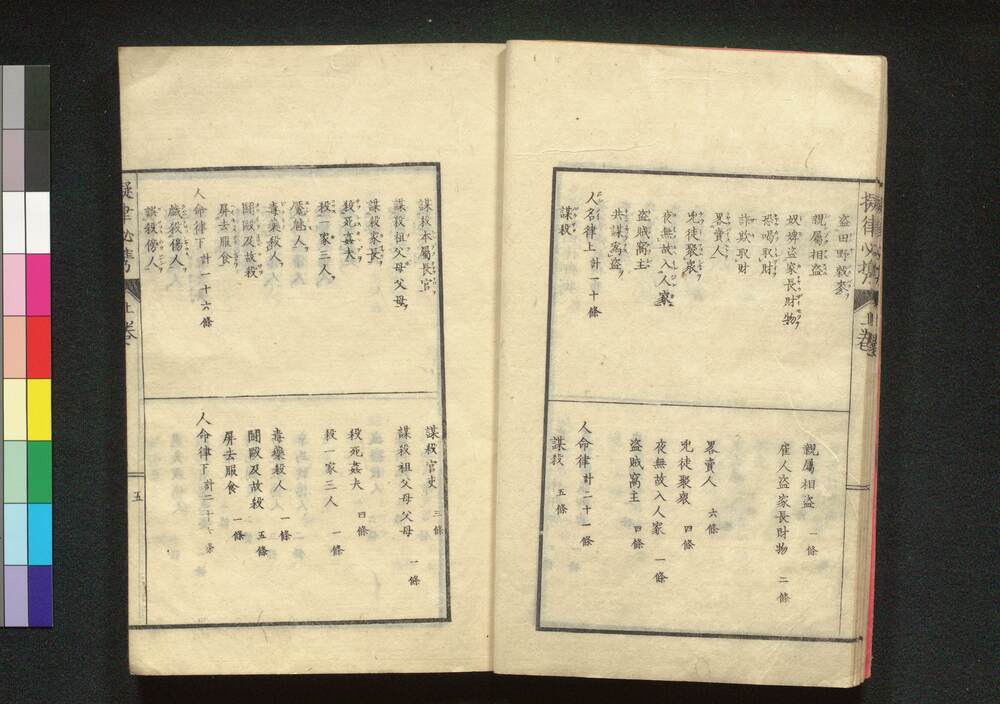 擬律必携 上巻
盗田野穀麥
親屬相盗
奴婢盗家長財物
恐喝取財
詐欺取財
畧賣人
兇徒聚衆
夜無故入人家
盗賊窩主
共謀爲盗
人名律上 計一十條
謀殺
親屬相盗 一條
雇人盗家長財物 二條
畧賣人 六條
兇徒聚衆 四條
夜無故入人家 一條
盗賊窩主 四條
人命律 計二十一條
謀殺 五條
謀殺本屬長官
謀殺祖父母父母
謀殺家長
殺死姦夫
殺一家三人
魘魅人
毒藥殺人
鬪毆及故殺
屏去服食
人命律下 計一十六條
戯殺傷人
誤殺傷人
謀殺官吏 三條
謀殺祖父母父母 一條
殺死姦夫 四條
殺一家三人 一條
毒藥殺人 一條
鬪毆及故殺 五條
屏去服食 一條
人命律下 計二十
擬律必携 上巻
五